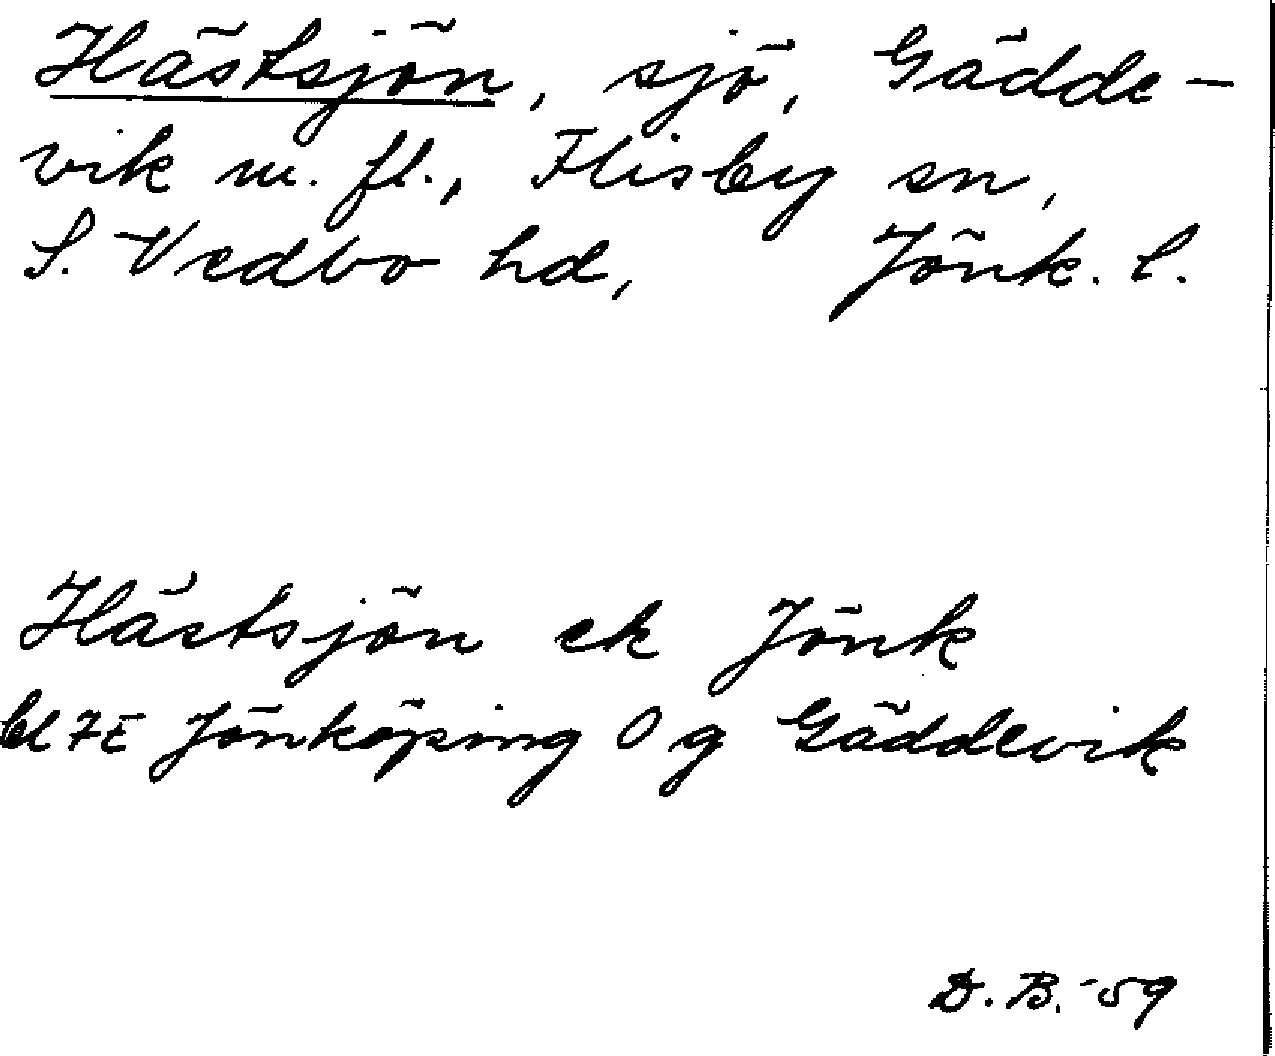 Hästsjön, sjö, Gädde-
vik m. fl., Flisby sn,
S. Vedbo hd, Jönk. l.
Hästsjön ek Jönk
bl 7E Jönköping Og Gäddevik
D. B. -59